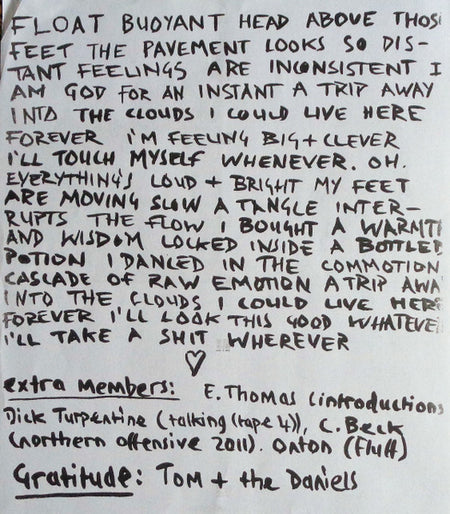 FLOAT BUOYANT HEAD ABOVE THOSE
FEET THE PAVEMENT LOOKS SO DIS-
TANT FEELINGS ARE INCONSISTENT I
AM GOD FOR AN INSTANT A TRIP AWAY
INTO THE CLOUDS I COULD LIVE HERE
FOREVER I'M FEELING BIG + CLEVER
I'LL TOUCH MYSELF WHENEVER. OH.
EVERYTHING'S LOUD + BRIGHT MY FEET
ARE MOVING SLOW A TANGLE INTER-
RUPTS THE FLOW I BOUGHT A WARMTH
AND WISDOM LOCKED INSIDE A BOTTLED
POTION I DANCED IN THE COMMOTION
CASCADE OF RAW EMOTION A TRIP AWA
INTO THE CLOUDS I COULD LIVE HERE
FOREVER I'LL LOOK THIS GOOD WHATEVE
I'LL TAKE A SHIT WHEREVER
♡
extra members: E. Thomas (introductions
Dick Turpentine (talking (tape 4)), C. Beck
(northern offensive 2011). Onton (Fluff)
Gratitude: Tom + the Daniels